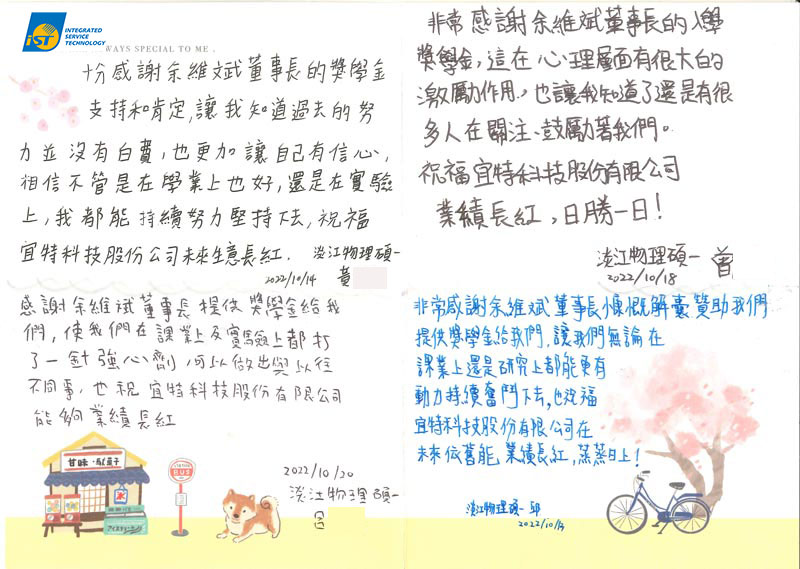 iST
INTEGRATED
SERVICE
TECHNOLOGY
WAYS SPECIAL TO ME.
十分感謝余維斌董事長的獎學金
支持和肯定,讓我知道過去的努
力並沒有白費,也更加讓自己有信心,
相信不管是在學業上也好,還是在實驗
上,我都能持續努力堅持下去,祝福
宜特科技股份公司未來生意長紅.
淡江物理碩一
2022/10/14
黃
非常感謝余維斌董事長的
獎學金,這在心理層面有很大的
激勵作用,也讓我知道了還是有很
多人在關注、鼓勵著我們。
祝福宜特科技股份有限公司
業績長紅,日勝一日!
淡江物理碩一 曾
2022/10/18
感謝余維斌董事長提供獎學金給我
們,使我們在課業上及實驗上都打
了一針強心劑,可以做出與以往
不同事,也祝宜特科技股份有限公司
能夠業績長紅
甘味・駄菓子
氷
BUS
2022/10/20
淡江物理碩一
呂
非常感謝余維斌董事長慷慨解囊贊助我們
提供獎學金給我們,讓我們無論在
課業上還是研究上都能更有
動力持續奮鬥下去,也祝福
宜特科技股份有限公司在
未來依舊能業績長紅,蒸蒸日上!
淡江物理碩一 邱
2022/10/14